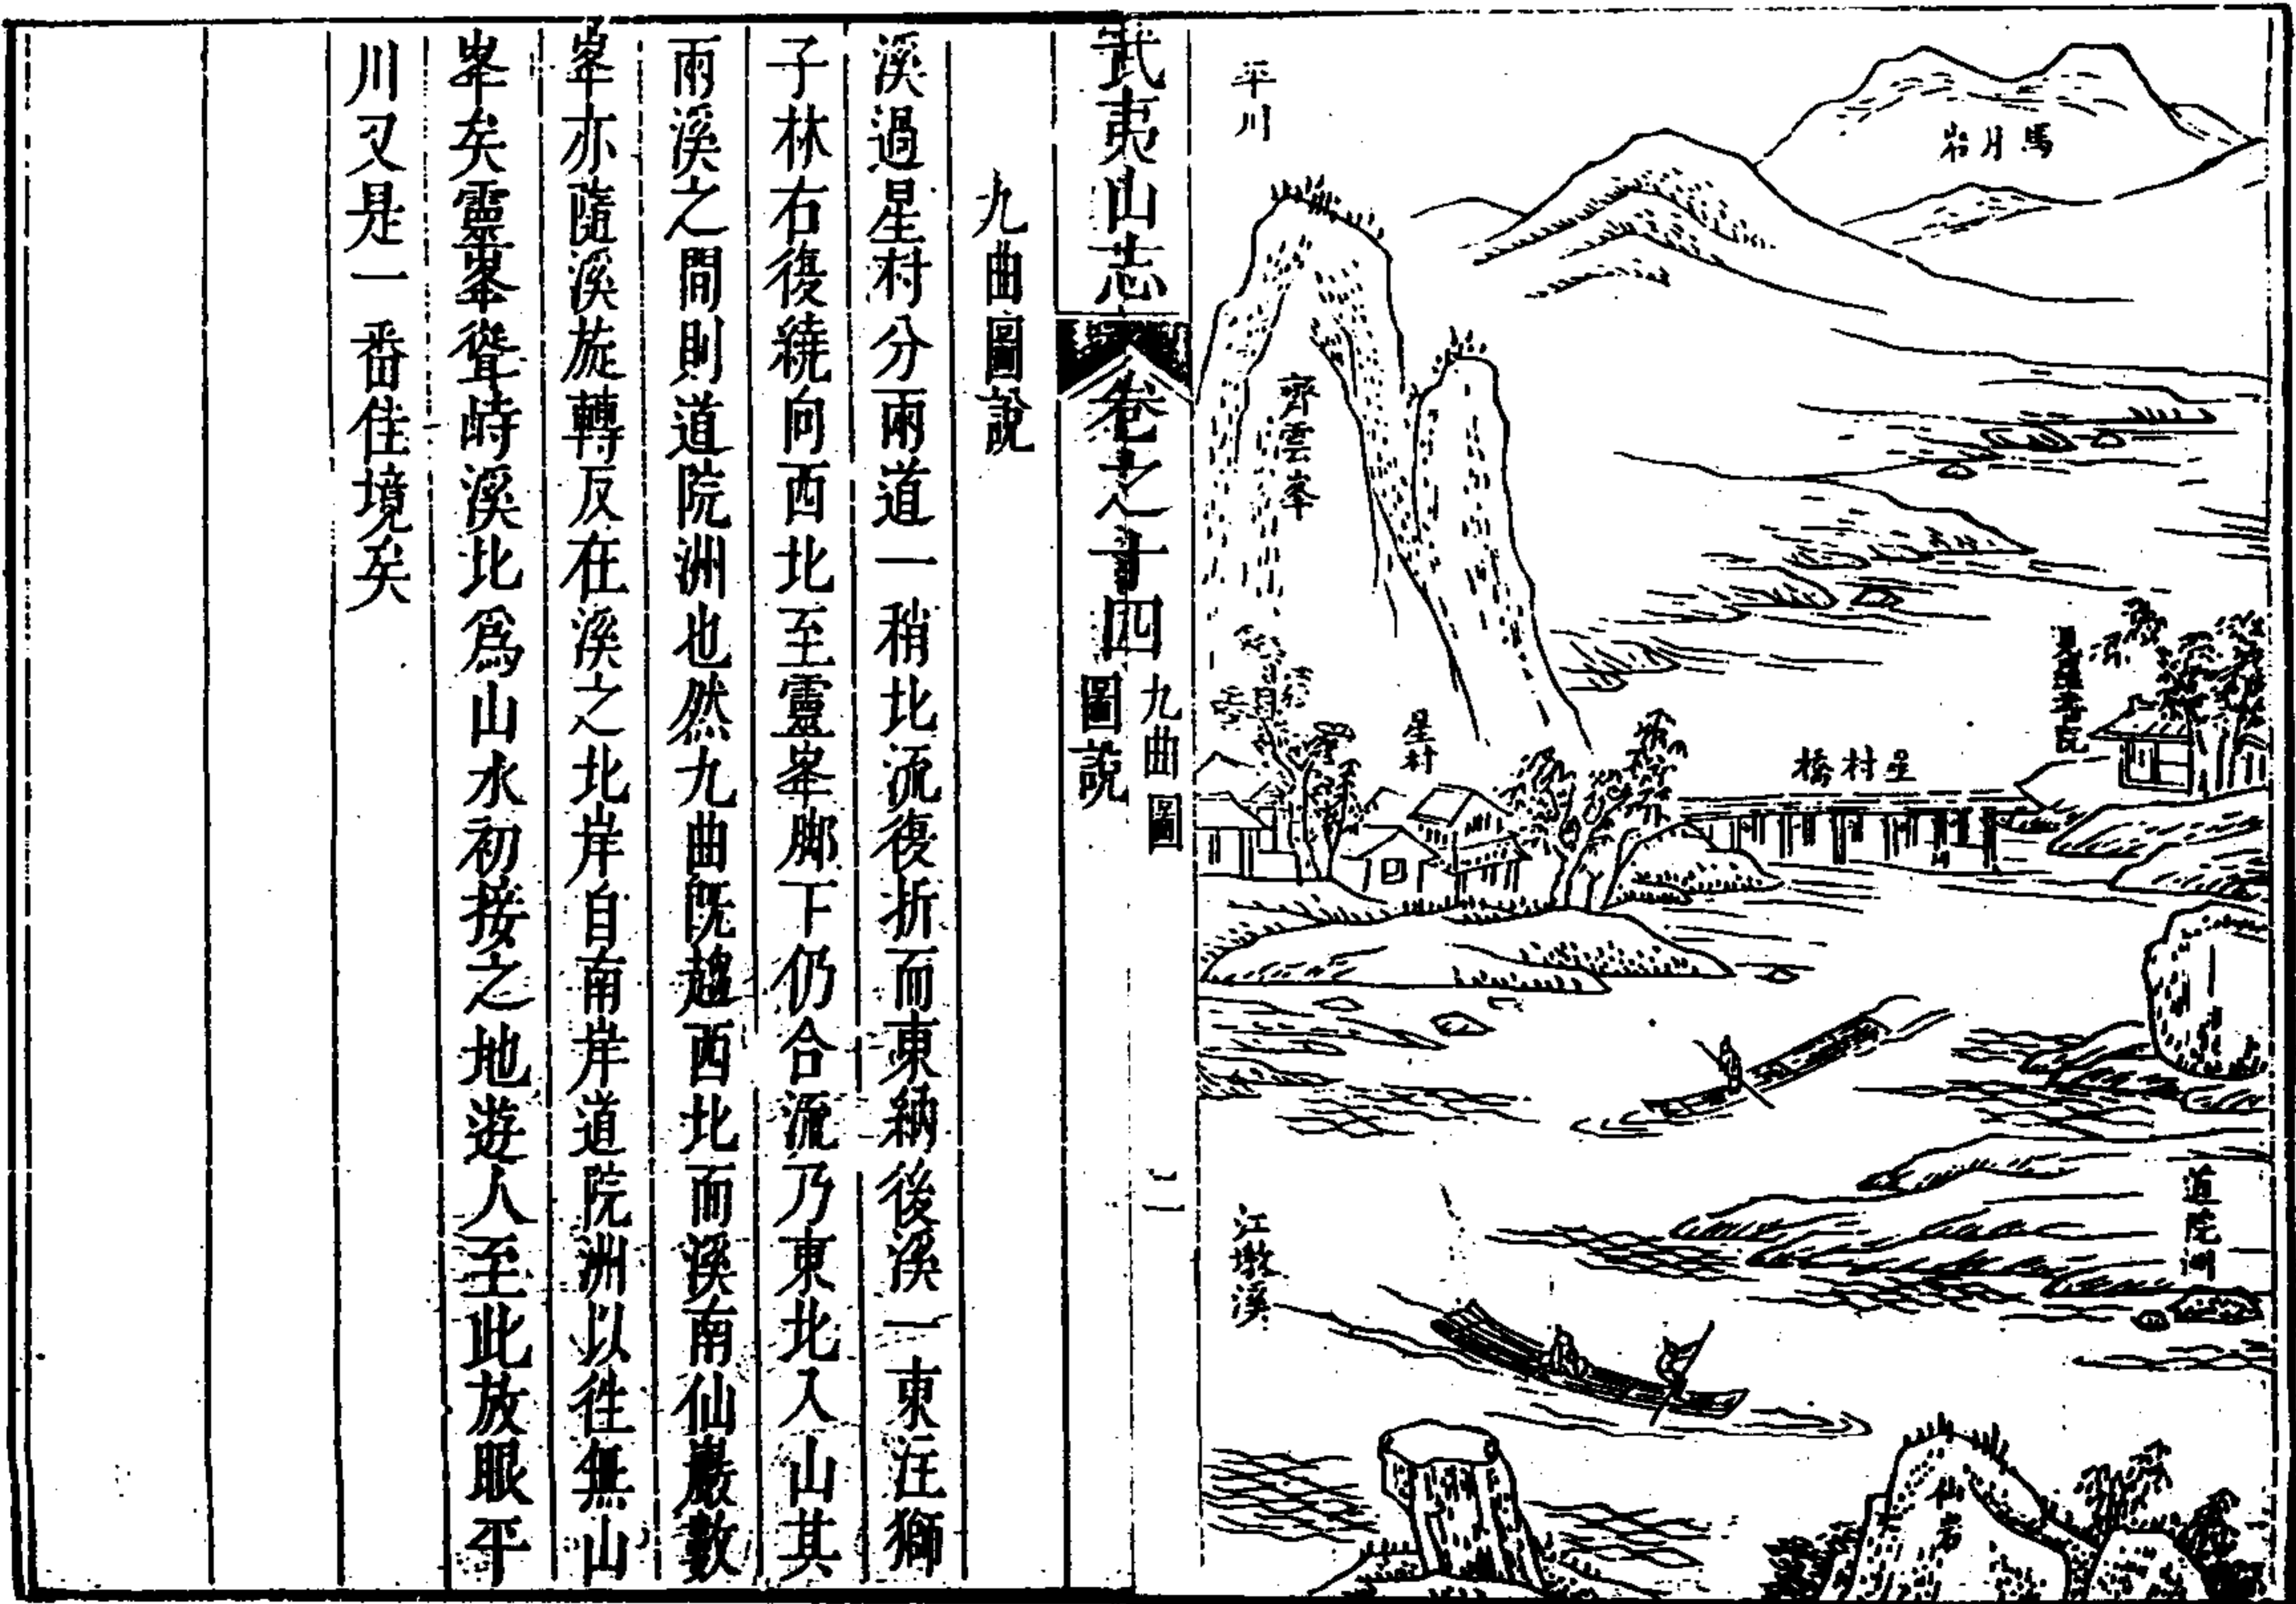 馬月岩
平川
齊雲峯
書院
星村橋
星村
道院洲
江墩溪
仙岩
武夷山志
卷之十四
九曲圖
圖說
二
九曲圖說
溪過星村分兩道一稍北流復折而東納後溪一東注獅
子林右復繞向西北至靈峯脚下仍合流乃東北入山其
兩溪之間則道院洲也然九曲既趨西北而溪南仙巖數
峯亦隨溪旋轉反在溪之北岸自南岸道院洲以徃無山
峯矣靈峯聳峙溪北爲山水初接之地遊人至此放眼平
川又是一番佳境矣